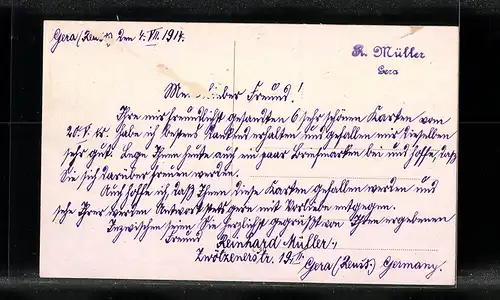 Gera (Reuß) den 4. VII. 1914.
R. Müller
Gera
Mein lieber Freund!
Ihre mir freundlichst gesandten 6 sehr schönen Karten vom
20. V. cr. habe ich bestens dankend erhalten und gefallen mir dieselben
sehr gut. Lege Ihnen heute auch ein paar Briefmarken bei und hoffe, daß
Sie sich darüber freuen werden.
Auch hoffe ich, daß Ihnen diese Karten gefallen werden und
sehe Ihrer werten Antwort stets gern mit Vorliebe entgegen.
Inzwischen seien Sie herzlichst gegrüßt von Ihrem ergebenen
Freund Reinhard Müller,
Zwötzenerstr. 
Gera (Reuß.) Germany.